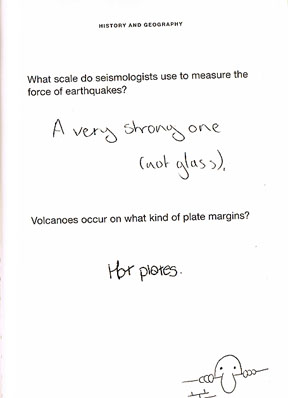 HISTORY AND GEOGRAPHY
What scale do seismologists use to measure the
force of earthquakes?
A very strong one
(not glass).
Volcanoes occur on what kind of plate margins?
Hot plates.